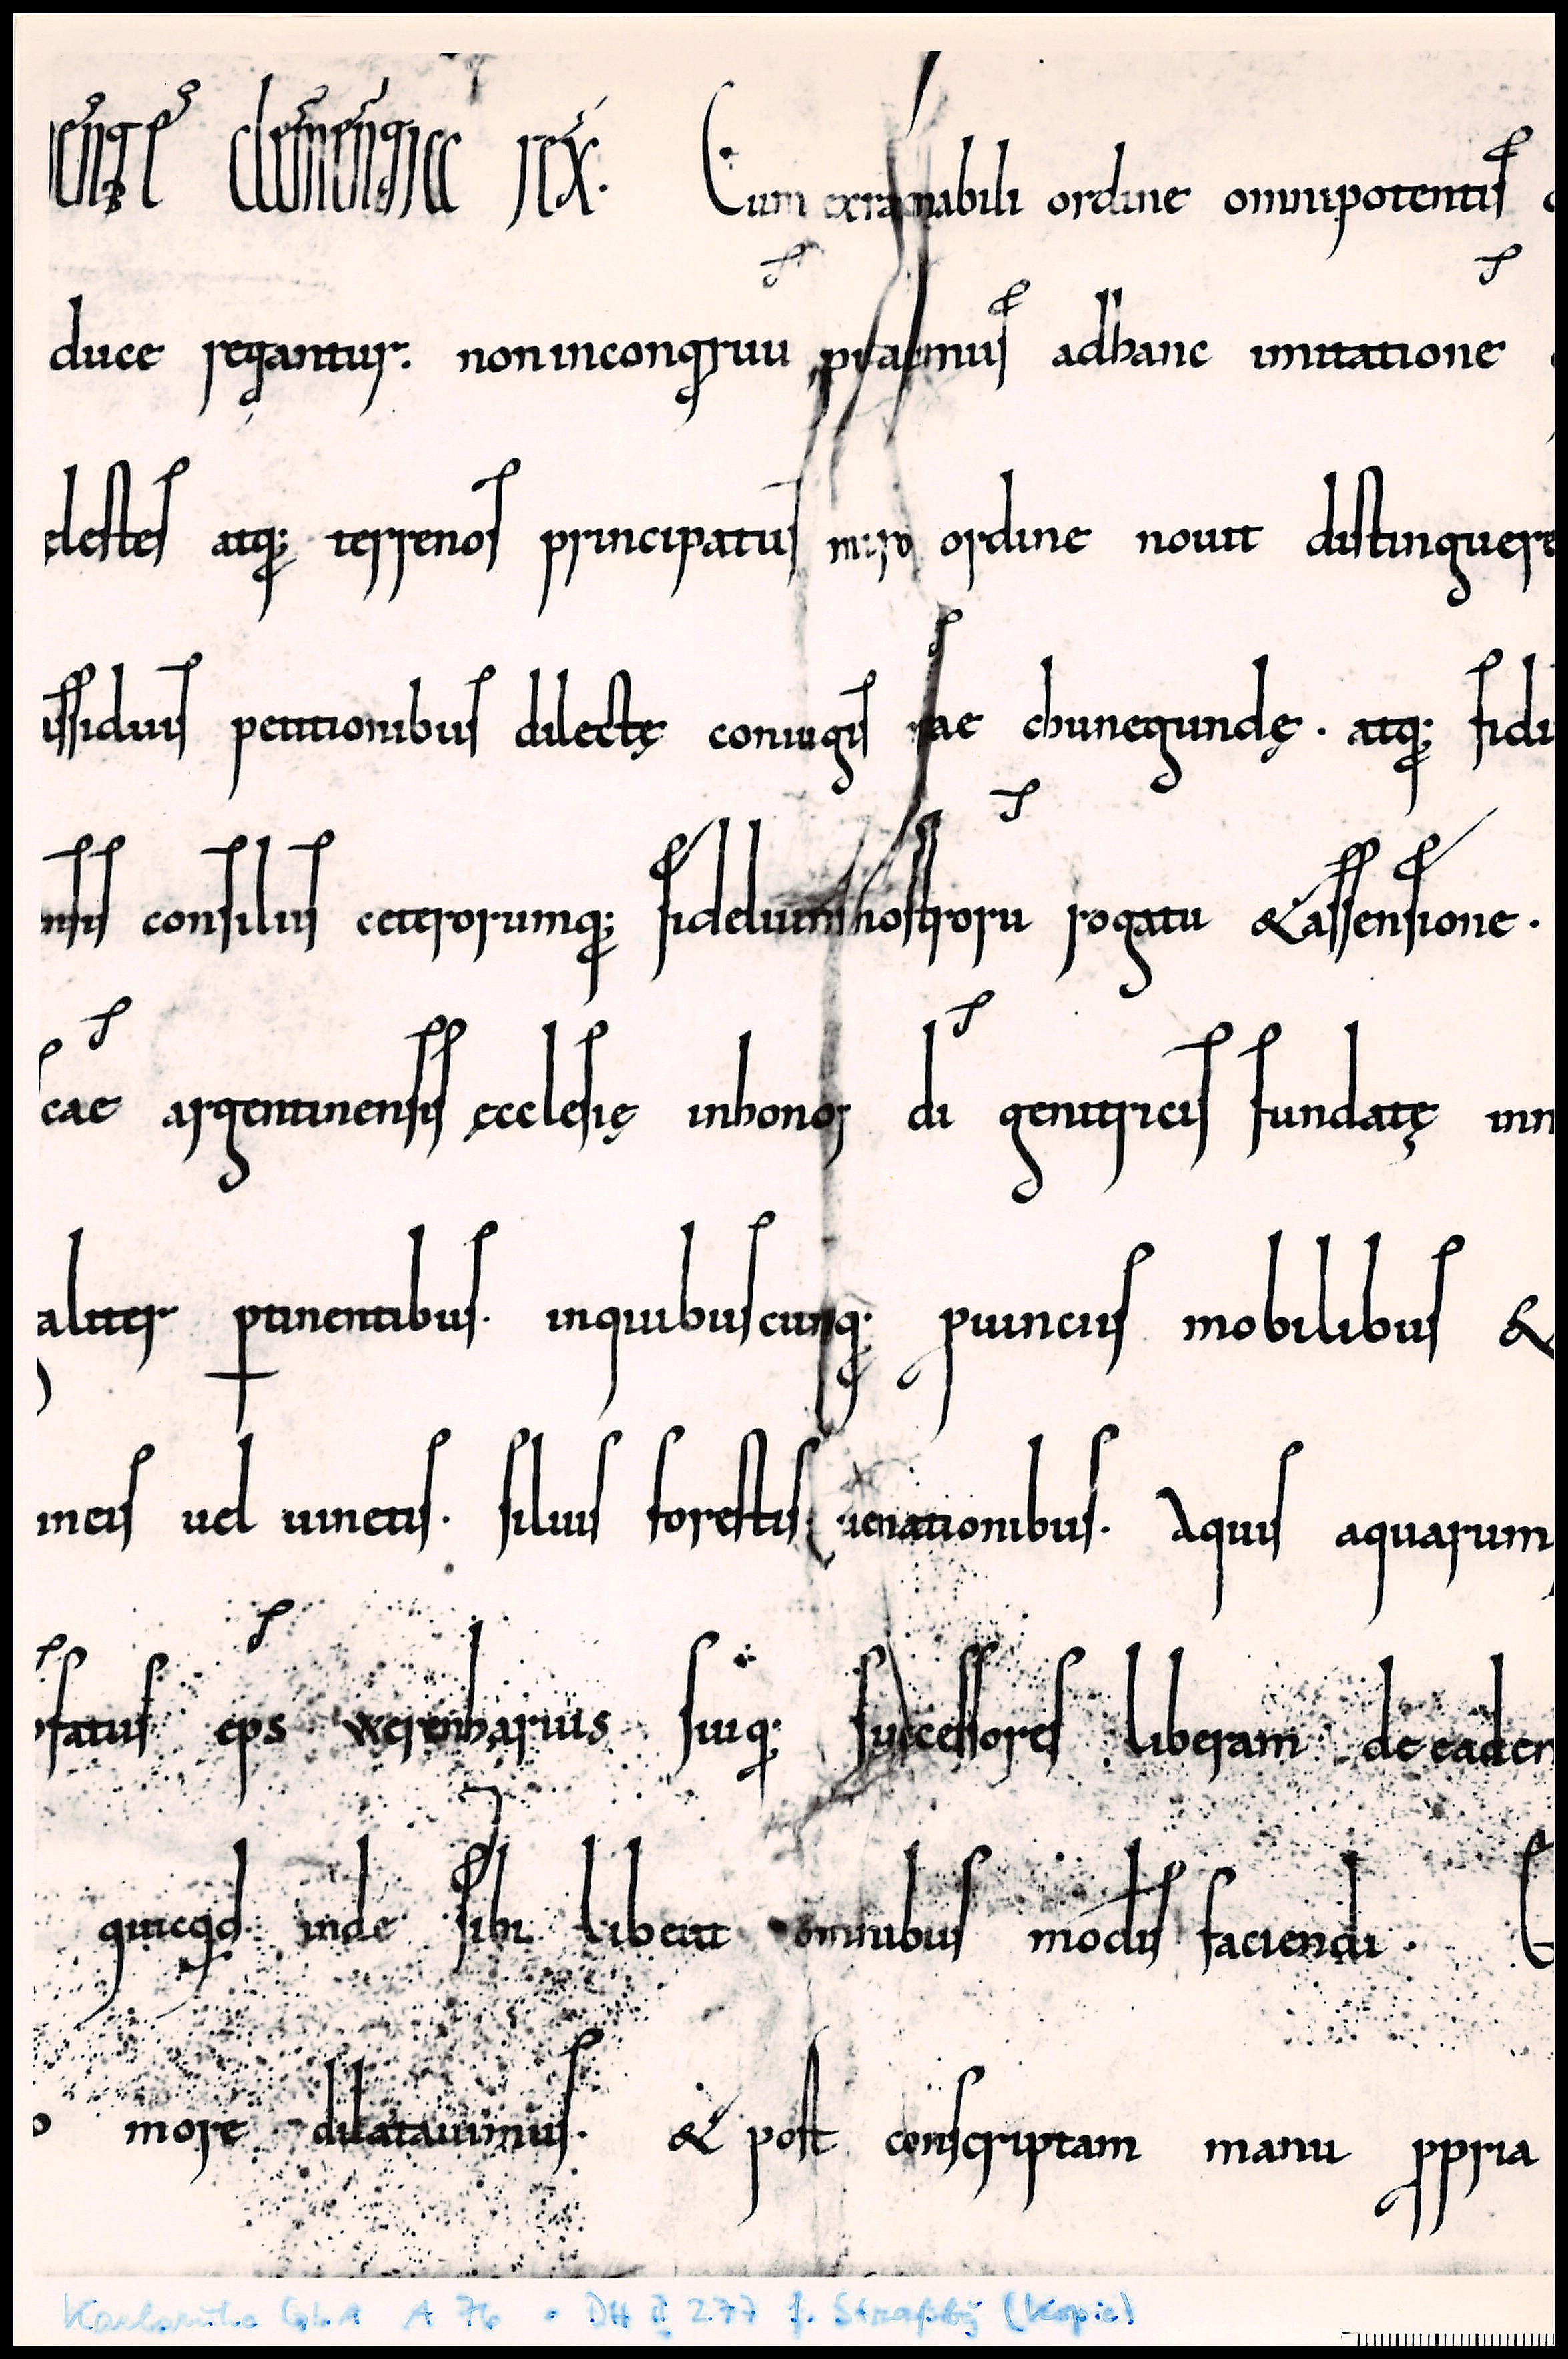 clementia rex. Cum ex rationabili ordine omnipotentis
duce regantur. non incongruu putamus adhanc imitatione
elestes atq; terrenos principatus miro ordine nouit distinguere
assiduis petitionibus dilectę coniugis nrae chunegundę. atq; fidi
consiliis ceterorumq; fidelium nostroru rogatu & assensione.
cae argentinensis ęcclesię inhonore di genitricis fundatę inn
aliter ptinentibus. inquibuscunq; puinciis mobilibus &
ineis uel uinetis. siluis forestis uenationibus. Aquis aquarum
fatus eps werenharius suiq; successores liberam de eadem
quicqd inde sibi libeat omnibus modis faciendi.
o more dilatauimus. & post conscriptam manu ppria
Karlsruhe GLA A 76 • DH II 277 f. Straßbg (Kopie)